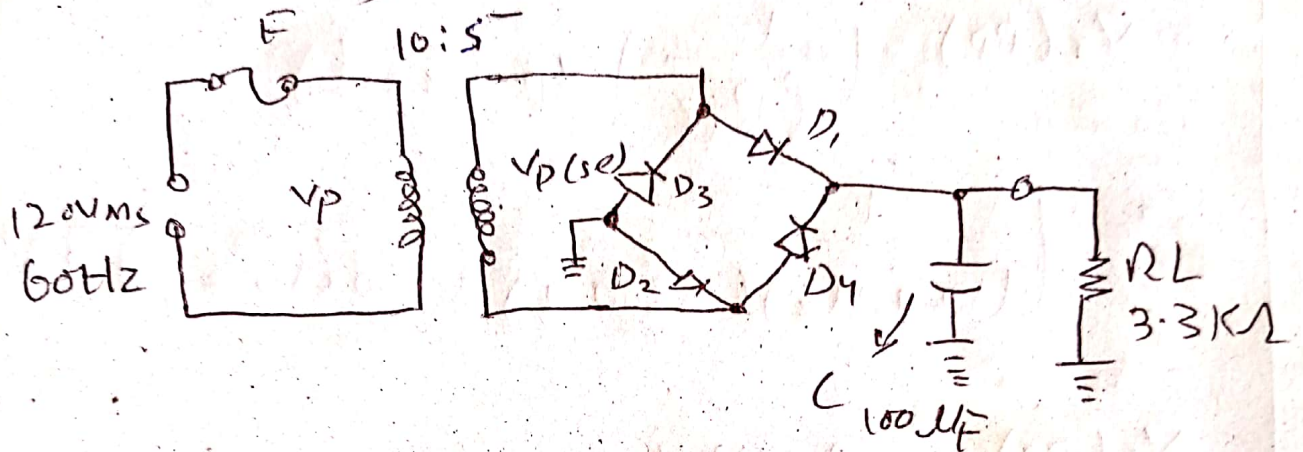 F
10:5
120Vms
60Hz
Vp
Vp(se)
D1
D3
D2
D4
C
100 µF
RL
3.3KΩ